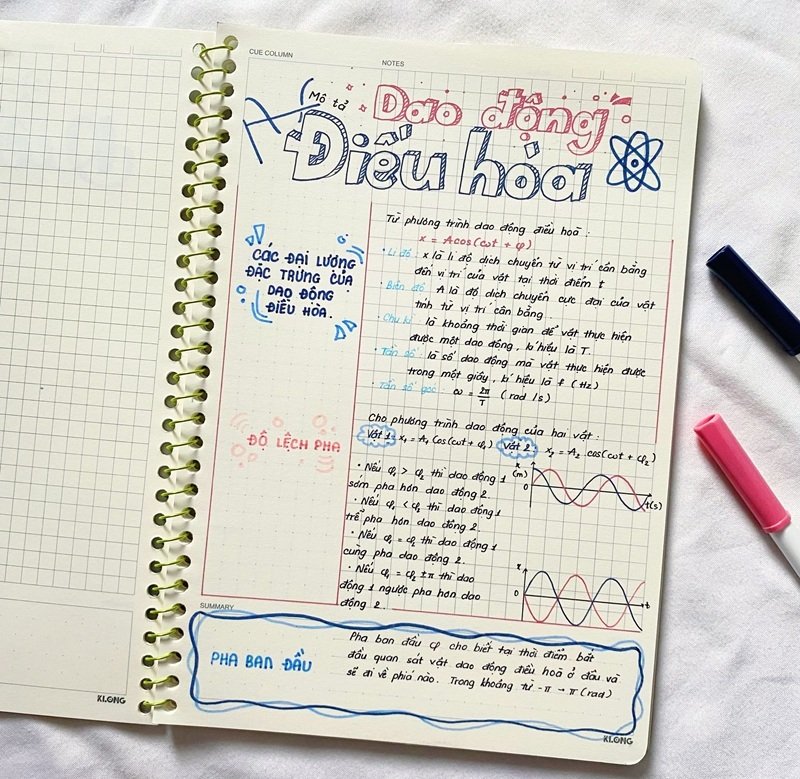 CUE COLUMN
NOTES
Mô tả
Dao động
Điều hòa
CÁC ĐẠI LƯỢNG
ĐẶC TRƯNG CỦA
DAO ĐỘNG
ĐIỀU HÒA.
Từ phương trình dao động điều hoà :
x = Acos(ωt + φ)
• Li độ : x là li độ dịch chuyển từ vị trí cân bằng
đến vị trí của vật tại thời điểm t
• Biên độ : A là độ dịch chuyển cực đại của vật
tính từ vị trí cân bằng .
• Chu kì : là khoảng thời gian để vật thực hiện
được một dao động , kí hiệu là T.
• Tần số : là số dao động mà vật thực hiện được
trong một giây, kí hiệu là f (Hz)
• Tần số góc : ω = 2π/T (rad/s)
ĐỘ LỆCH PHA
Cho phương trình dao động của hai vật :
Vật 1 : x₁ = A₁ cos(ωt + φ₁) Vật 2 : x₁ = A₂ cos(ωt + φ₂)
• Nếu φ₁ > φ₂ thì dao động 1
sớm pha hơn dao động 2.
• Nếu φ₁ < φ₂ thì dao động 1
trễ pha hơn dao động 2.
• Nếu φ₁ = φ₂ thì dao động 1
cùng pha dao động 2.
• Nếu φ₁ = φ₂ ± π thì dao
động 1 ngược pha hơn dao
động 2.
x
(m)
0
t(s)
x
0
t
SUMMARY
PHA BAN ĐẦU
Pha ban đầu φ cho biết tại thời điểm bắt
đầu quan sát vật dao động điều hoà ở đâu và
sẽ đi về phía nào. Trong khoảng từ -π → π (rad)
KLONG
KLONG